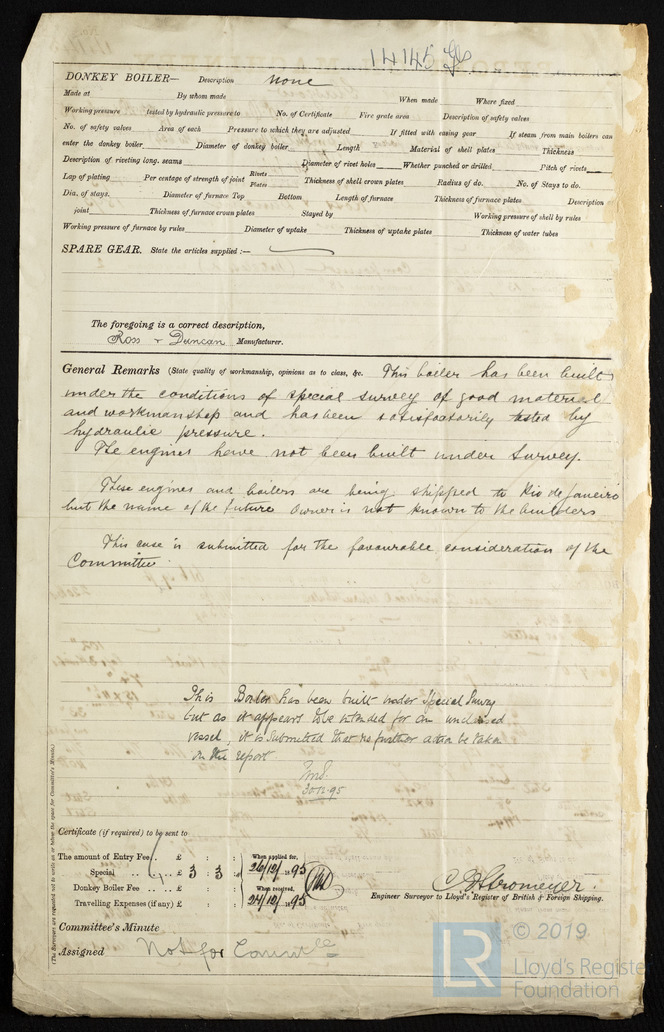 14145 Gls
DONKEY BOILER— Description None
Made at By whom made When made Where fixed
Working pressure tested by hydraulic pressure to No. of Certificate Fire grate area Description of safety valves
No. of safety valves Area of each Pressure to which they are adjusted If fitted with easing gear If steam from main boilers can
enter the donkey boiler Diameter of donkey boiler Length Material of shell plates Thickness
Description of riveting long. seams Diameter of rivet holes Whether punched or drilled Pitch of rivets
Lap of plating Per centage of strength of joint Rivets Plates Thickness of shell crown plates Radius of do. No. of Stays to do.
Dia. of stays. Diameter of furnace Top Bottom Length of furnace Thickness of furnace plates Description
joint Thickness of furnace crown plates Stayed by Working pressure of shell by rules
Working pressure of furnace by rules Diameter of uptake Thickness of uptake plates Thickness of water tubes
SPARE GEAR. State the articles supplied :—
The foregoing is a correct description,
Ross & Duncan Manufacturer.
General Remarks (State quality of workmanship, opinions as to class, &c. This boiler has been built
under the conditions of special survey of good material
and workmanship and has been satisfactorily tested by
hydraulic pressure.
The engines have not been built under Survey.
These engines and boilers are being shipped to Rio de Janeiro
but the name of the future owner is not known to the builders
This case is submitted for the favourable consideration of the
Committee
This Boiler has been built under Special Survey
but as it appears to be intended for an unclassed
vessel, it is submitted that no further action be taken
on this report
30.12.95
(The Surveyors are requested not to write on or below the space for Committee's Minute.)
Certificate (if required) to be sent to
The amount of Entry Fee . . £ : : When applied for,
Special . . . . £ 3 : 3 : 26/12/1895
Donkey Boiler Fee . . . . £ : : When received,
Travelling Expenses (if any) £ : : 27/12/1895
C. E. Stromeyer.
Engineer Surveyor to Lloyd's Register of British & Foreign Shipping.
Committee's Minute
Assigned Not for Committee
LR © 2019
Lloyd's Register
Foundation